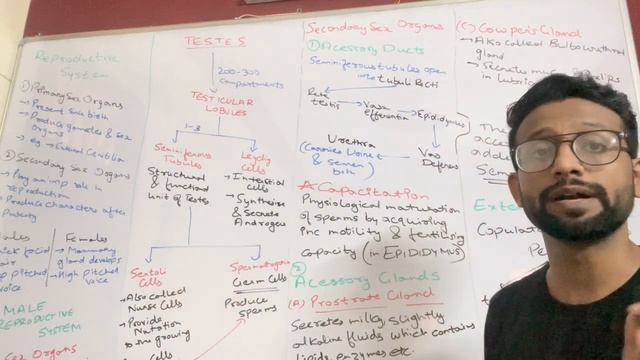 Reproductive
System
1) Primary Sex Organs
→ Present Since birth
→ Produce gametes & sex
organs
→ eg → External Genitilia
2) Secondary Sex Organs
→ Play an imp role in
reproduction
→ Produce characters after
Puberty
Males
Females
facial
hair
pitched
voice
→ Mammary
gland develops
→ High pitched
voice
MALE
REPRODUCTIVE
SYSTEM
Sex Organs
TESTES
200-300
compartments
TESTICULAR
LOBULES
1-3
Seminiferous
Tubules
Structural
& functional
unit of Testes
Leydig
Cells
→ Interstitial
Cells
→ Synthesize
& Secrete
Androgens
Sertoli
Cells
→ Also called
Nurse Cells
→ Provide
Nutrition
to growing
Cells
Spermatogonia
Germ Cells
Produce
sperms
Secondary Sex Organs
1) Acessory Ducts
Seminiferous tubules open
into tubuli Recti
Rete
testis
→ Vasa
efferentia
→ Epididymes
Vas
Deferens
Urethra
(Carries Urine
& semen
both)
Capacitation
Physiological maturation
of sperms by acquiring
Inc motility & fertilising
capacity (in EPIDIDYMUS)
2)
Acessory Glands
(A) Prostrate Gland
Secretes milky, slightly
alkaline fluids which contains
lipids, enzymes etc.
(C) Cowper's Gland
→ Also called Bulbourethral
gland
→ Secretes mucus
in lubrication
The
acces
adde
Sem
Exte
Copula
Pe